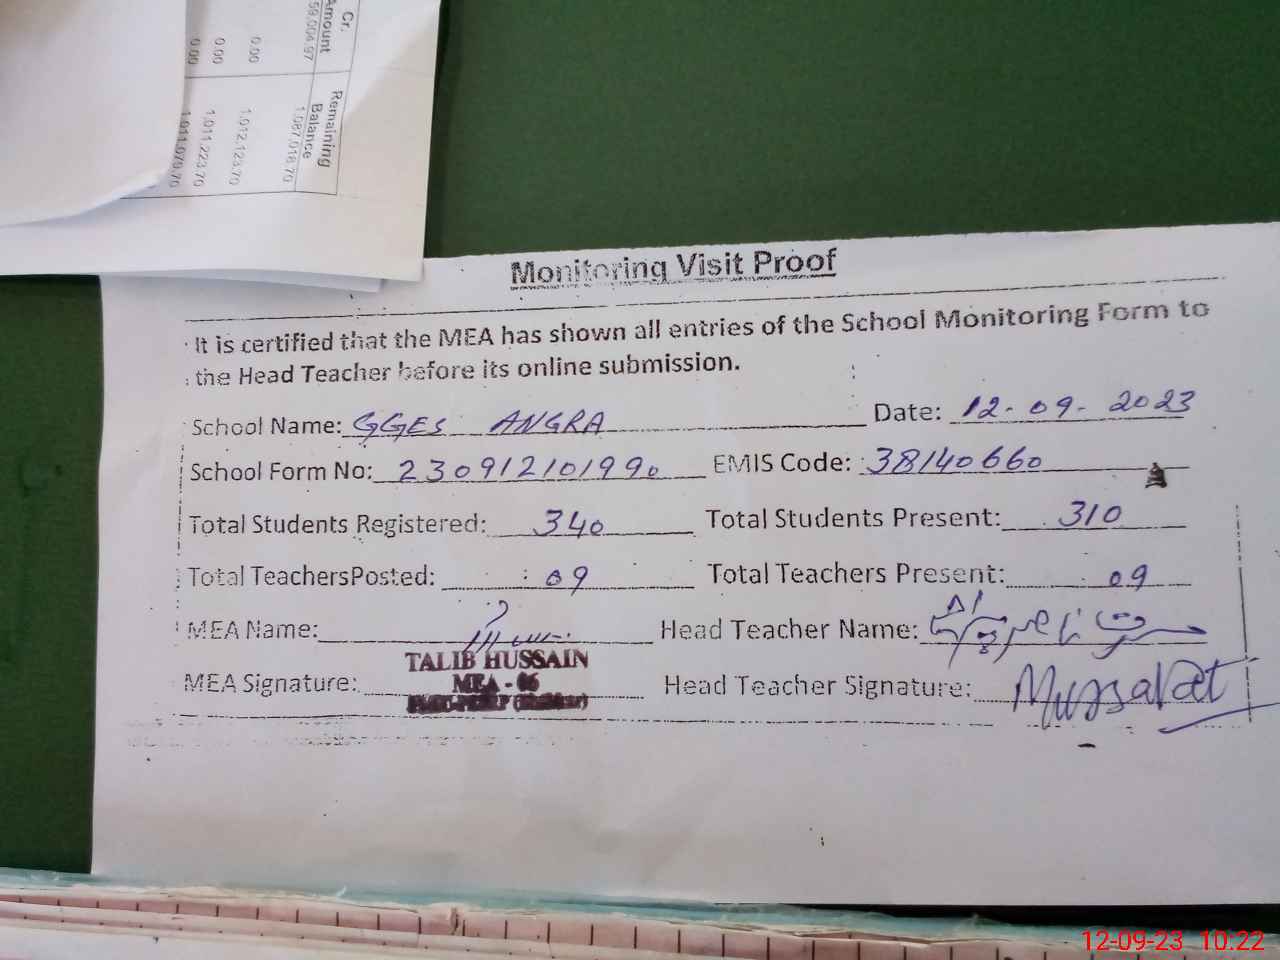 Cr.
Amount
59,004.97
0.00
0.00
0.00
Remaining
Balance
1,087,018.70
1,012,123.70
1,011,223.70
1,011,070.70
Monitoring Visit Proof
It is certified that the MEA has shown all entries of the School Monitoring Form to
the Head Teacher before its online submission.
School Name: GGES ANGRA Date: 12-09-2023
School Form No: 230912101990 EMIS Code: 38140660
Total Students Registered: 340 Total Students Present: 310
Total TeachersPosted: 09 Total Teachers Present: 09
MEA Name: Head Teacher Name:
TALIB HUSSAIN
MEA - 06
MEA Signature: Head Teacher Signature: Mussarat
12-09-23 10:22